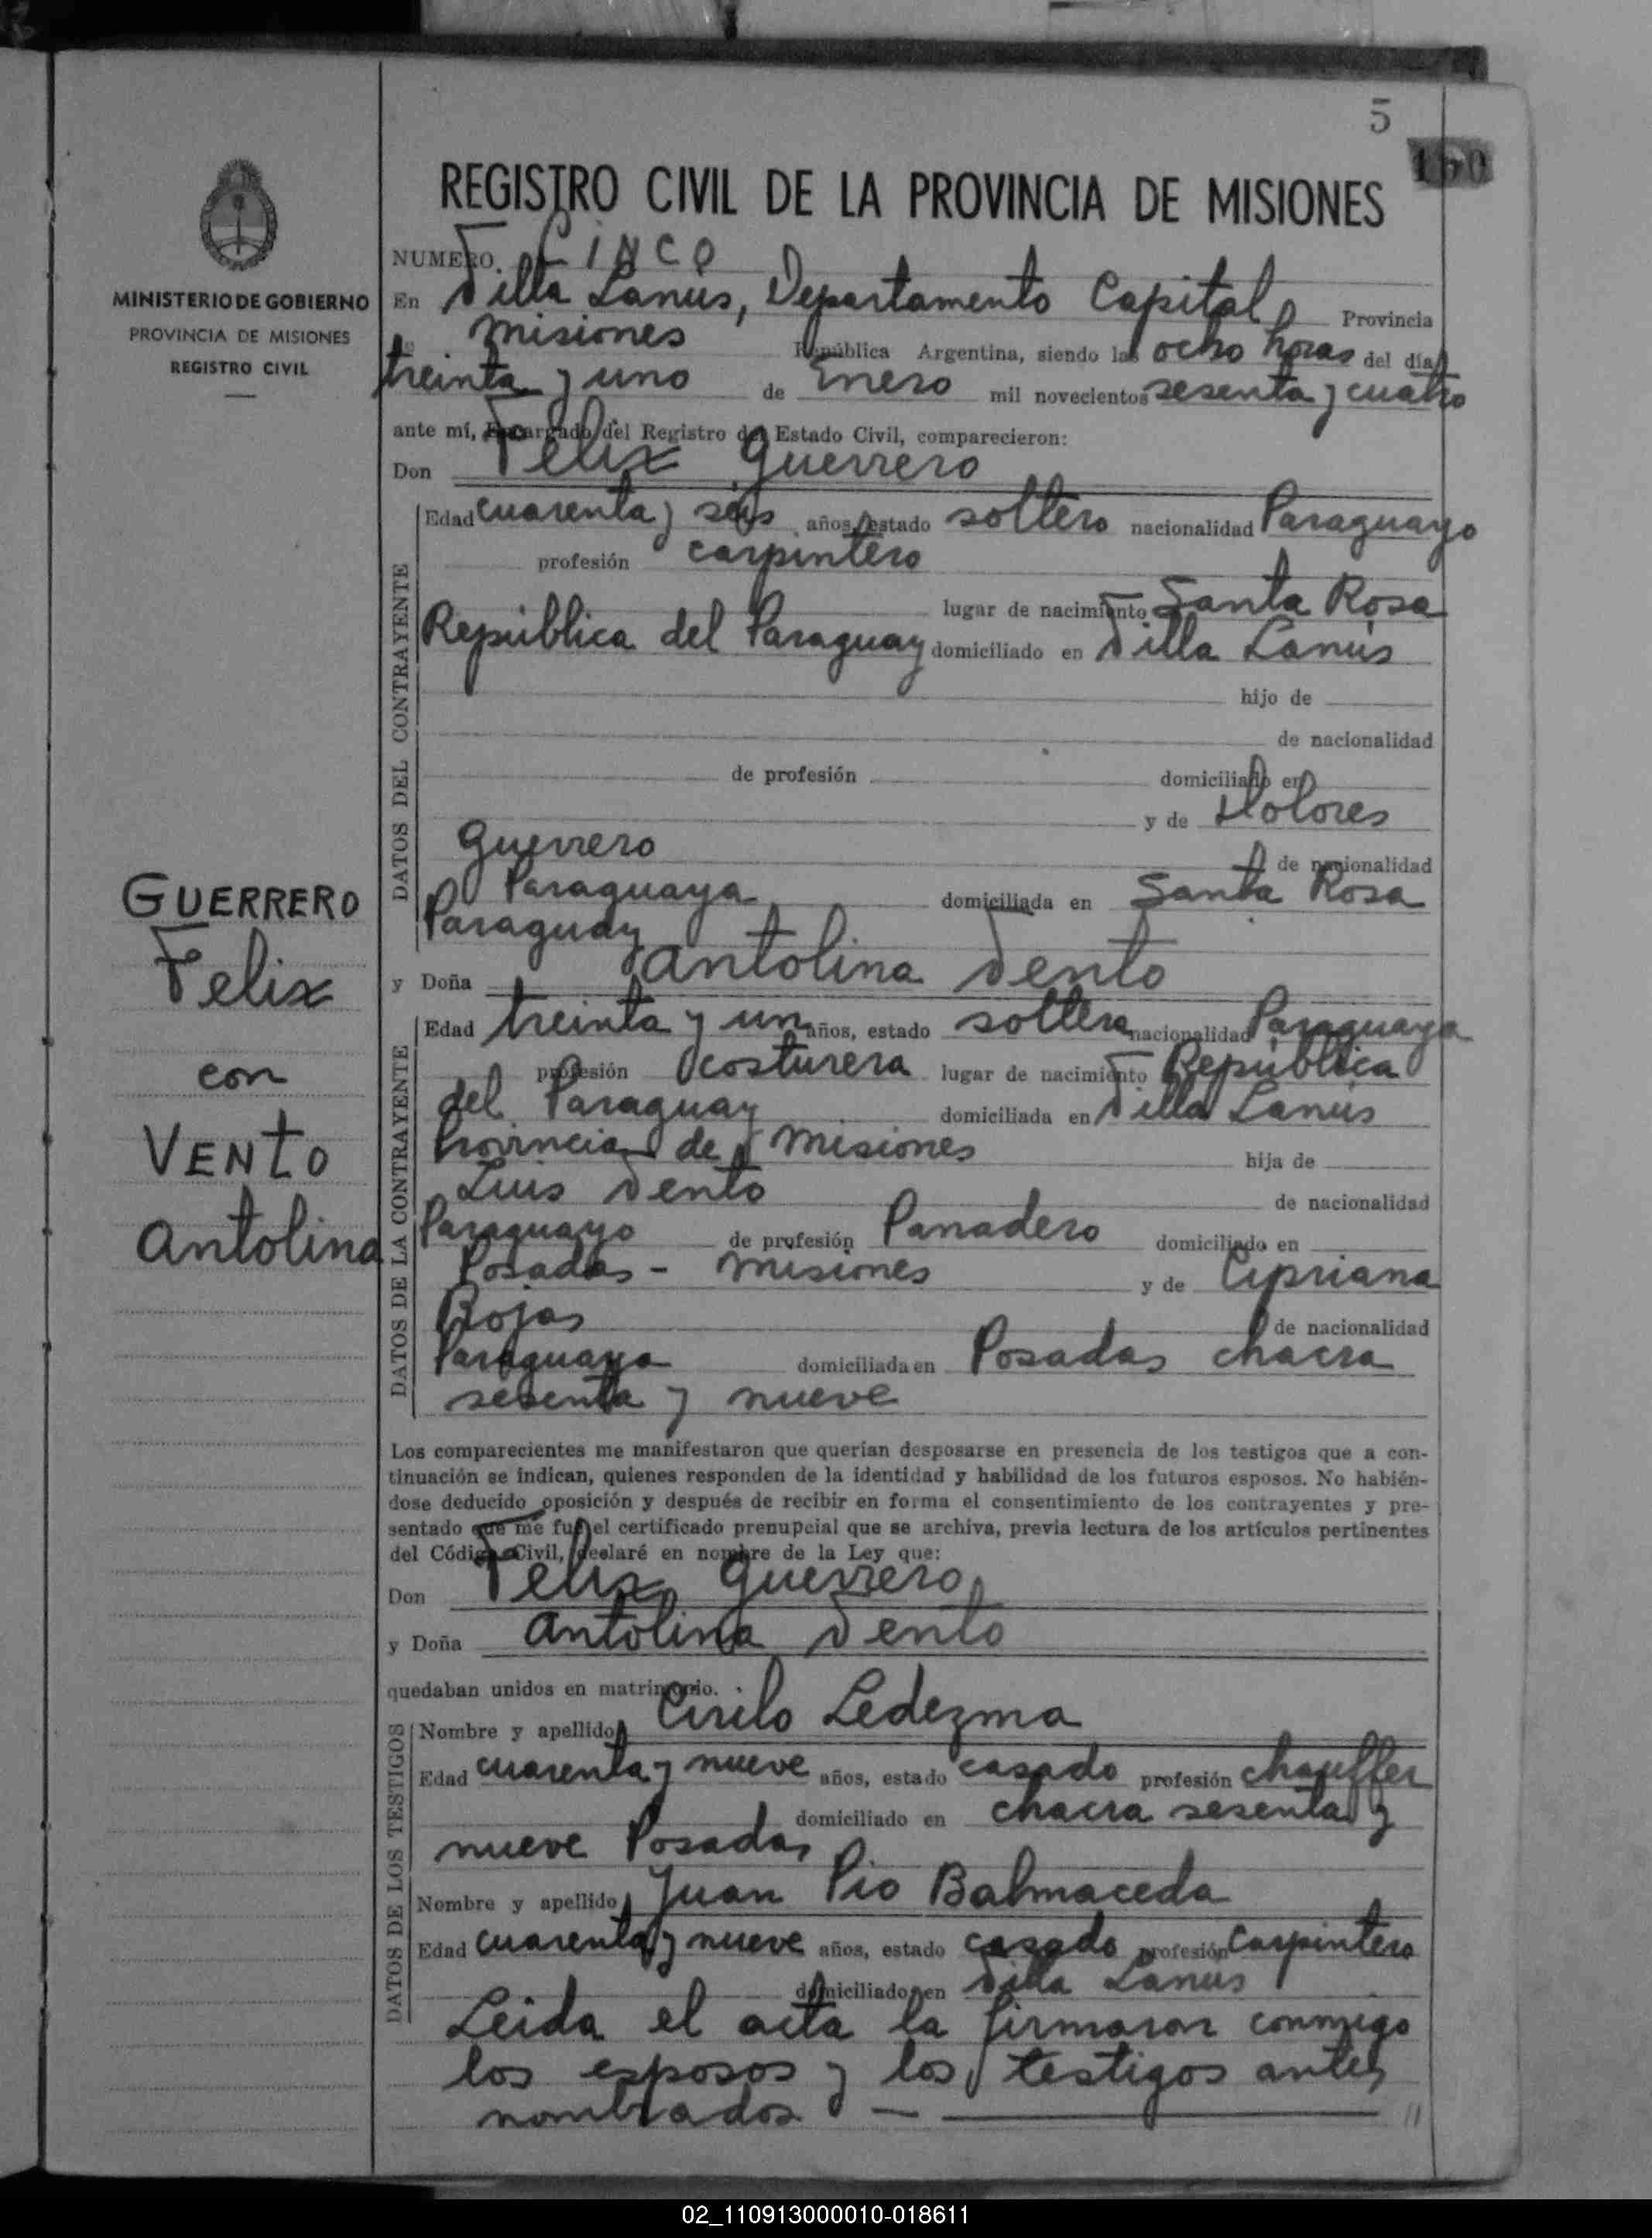 5
150
REGISTRO CIVIL DE LA PROVINCIA DE MISIONES
MINISTERIO DE GOBIERNO
PROVINCIA DE MISIONES
REGISTRO CIVIL
NUMERO. CINCO
En Villa Lanus, Departamento Capital Provincia
Misiones República Argentina, siendo las ocho horas del día
treinta y uno de Enero mil novecientos sesenta y cuatro
ante mí, Encargado del Registro del Estado Civil, comparecieron:
Don Felix Guerrero
DATOS DEL CONTRAYENTE
Edad cuarenta y seis años, estado soltero nacionalidad Paraguayo
profesión carpintero
lugar de nacimiento Santa Rosa
República del Paraguay domiciliado en Villa Lanús
hijo de
de nacionalidad
de profesión domiciliado en
y de Dolores
Guerrero de nacionalidad
Paraguaya domiciliada en Santa Rosa
Paraguay
y Doña Antolina Vento
DATOS DE LA CONTRAYENTE
Edad treinta y un años, estado soltera nacionalidad Paraguaya
profesión costurera lugar de nacimiento República
del Paraguay domiciliada en Villa Lanús
Provincia de Misiones hija de
Luis Vento de nacionalidad
Paraguayo de profesión Panadero domiciliado en
Posadas - Misiones y de Cipriana
Rojas de nacionalidad
Paraguaya domiciliada en Posadas chacra
sesenta y nueve
GUERRERO
Felix
con
VENTO
Antolina
Los comparecientes me manifestaron que querían desposarse en presencia de los testigos que a con-
tinuación se indican, quienes responden de la identidad y habilidad de los futuros esposos. No habién-
dose deducido oposición y después de recibir en forma el consentimiento de los contrayentes y pre-
sentado que me fué el certificado prenupcial que se archiva, previa lectura de los artículos pertinentes
del Código Civil, declaré en nombre de la Ley que:
Don Felix Guerrero
y Doña Antolina Vento
quedaban unidos en matrimonio.
DATOS DE LOS TESTIGOS
Nombre y apellido Cirilo Ledezma
Edad cuarenta y nueve años, estado casado profesión chauffer
domiciliado en chacra sesenta y
nueve Posadas
Nombre y apellido Juan Pio Balmaceda
Edad cuarenta y nueve años, estado casado profesión carpintero
domiciliado en Villa Lanus
Leida el acta la firmaron conmigo
los esposos y los testigos antes
nombrados —
02_110913000010-018611